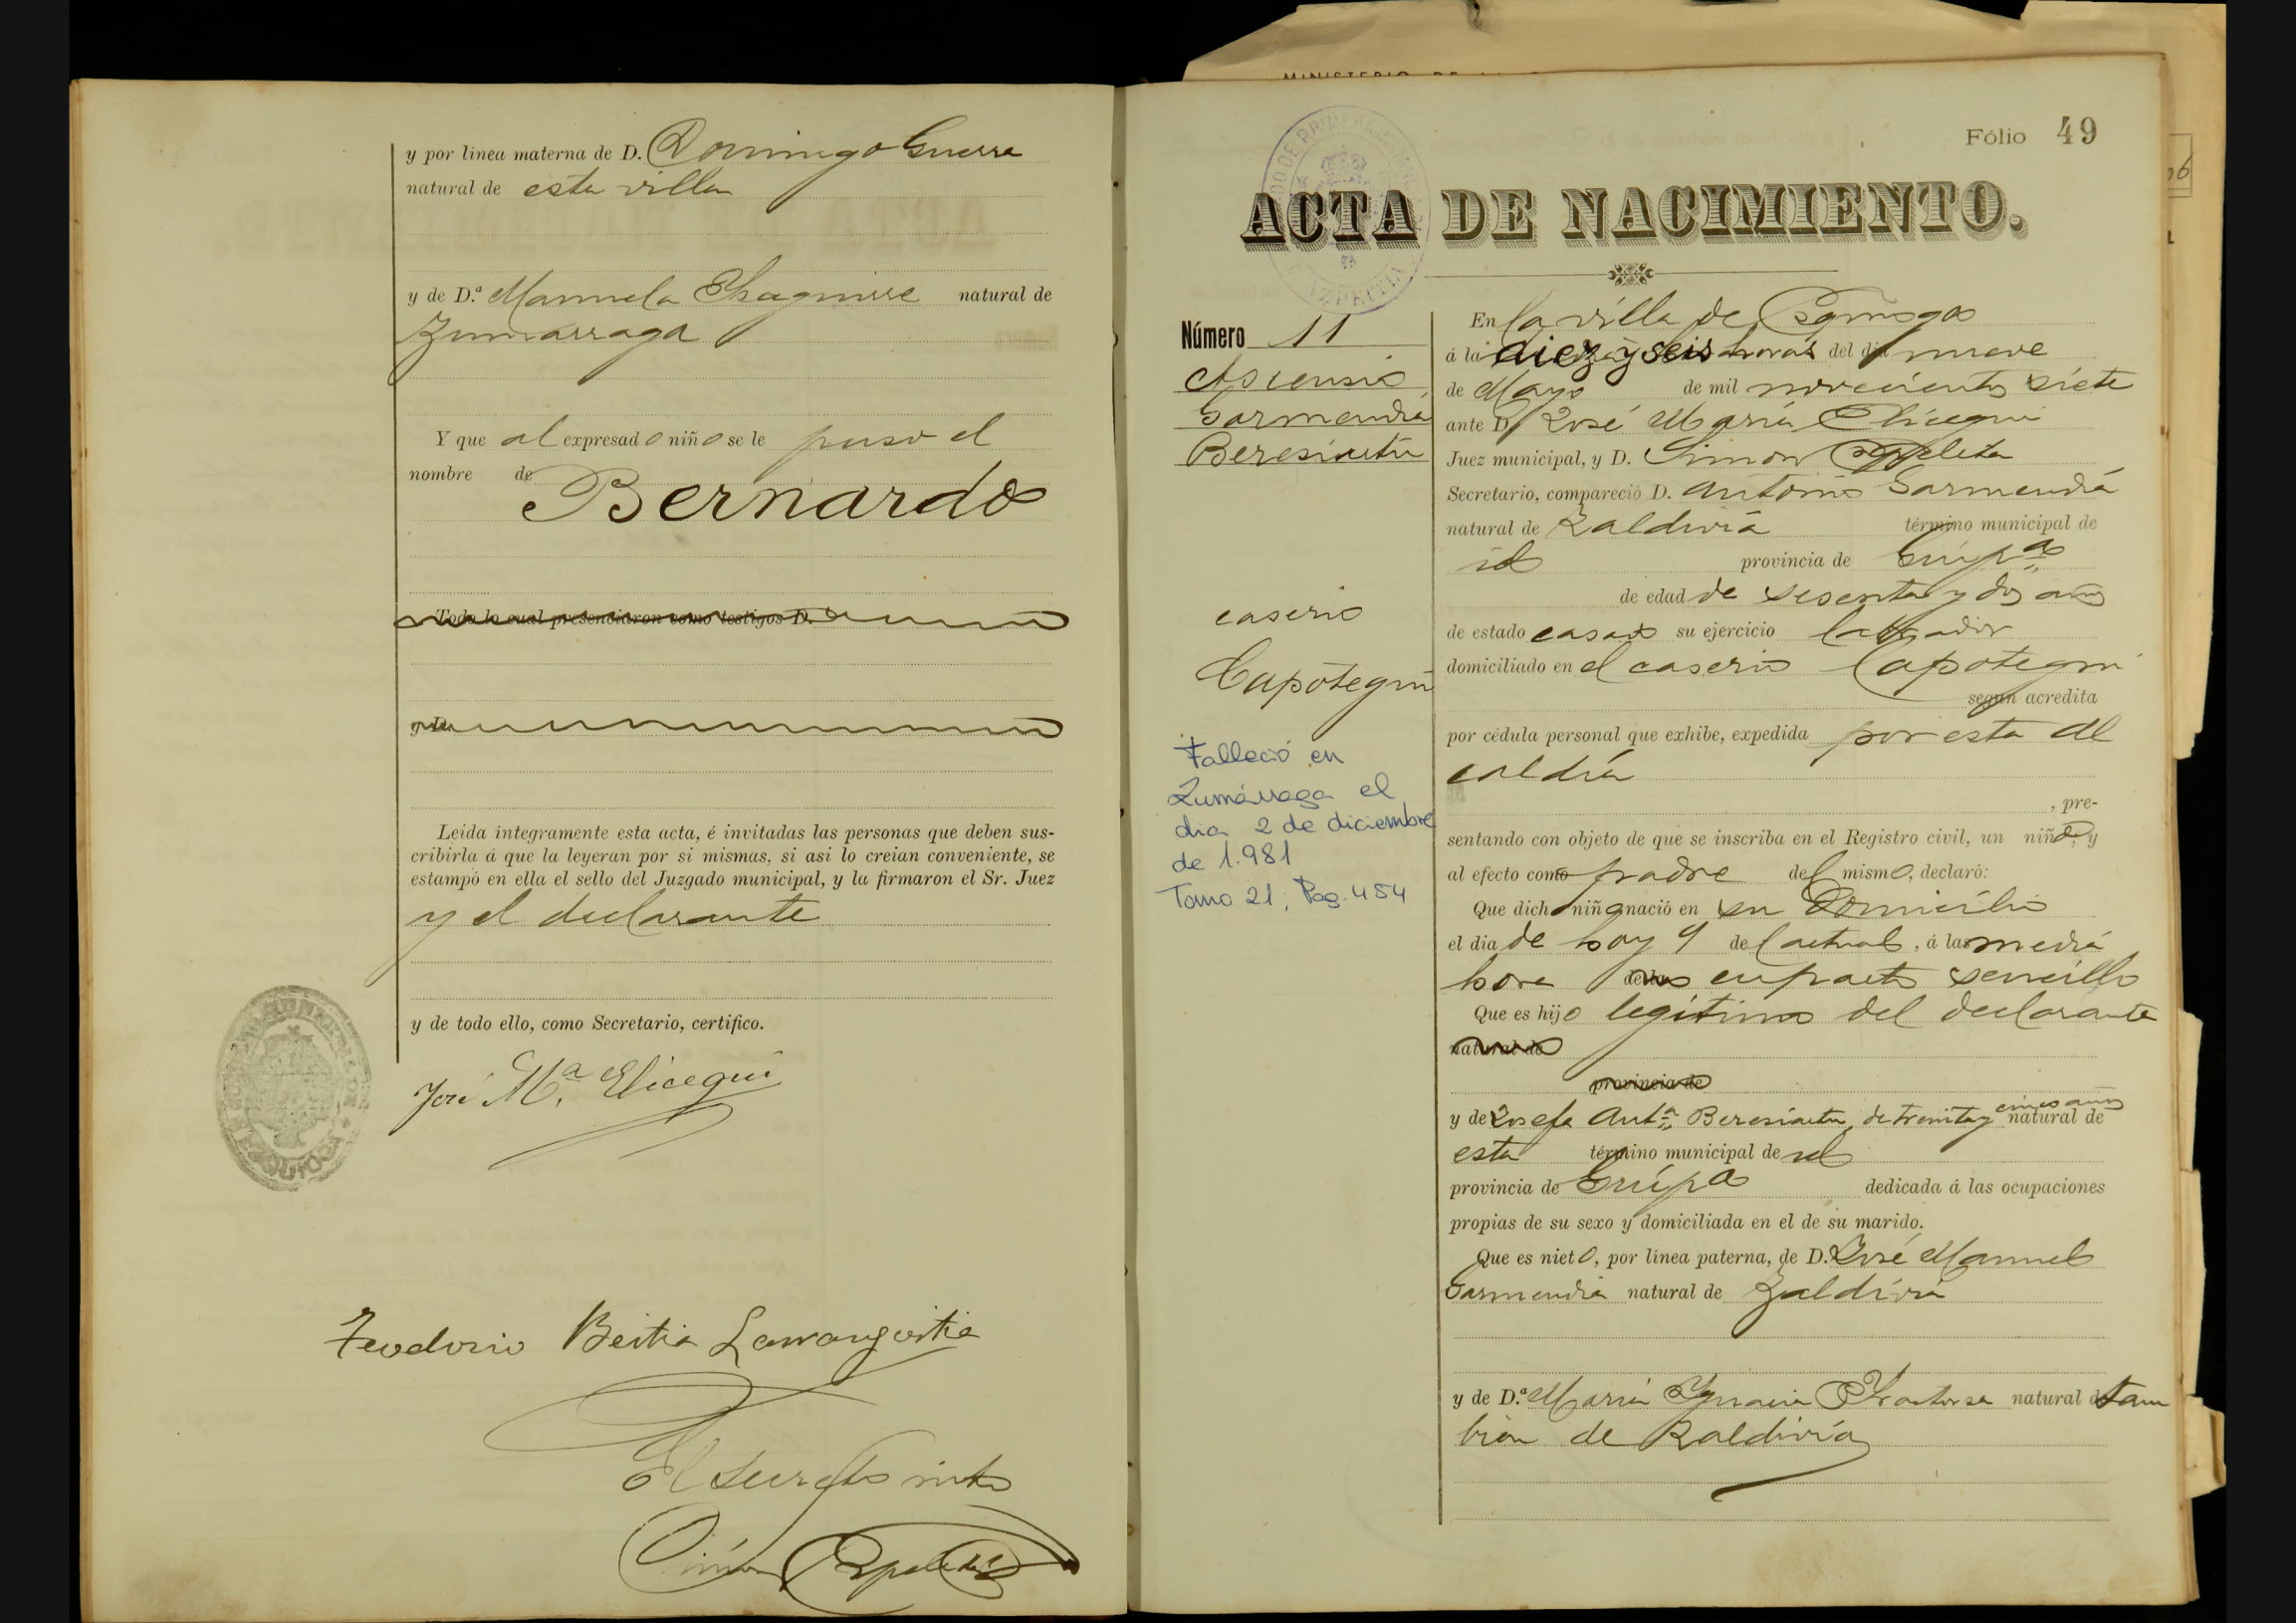 y por línea materna de D. Domingo Guerra
natural de esta villa
y de D.ª Manuela natural de
Zumarraga
Y que al expresado niño se le puso el
nombre de Bernardo
Todo lo cual presenciaron como testigos D.
y D.
Leída íntegramente esta acta, é invitadas las personas que deben sus-
cribirla á que la leyeran por si mismas, si asi lo creian conveniente, se
estampó en ella el sello del Juzgado municipal, y la firmaron el Sr. Juez
y el declarante
y de todo ello, como Secretario, certifico.
José M.ª Elicegui
Teodorio Beitia
El
Simón
MINISTERIO DE
Fólio 49
ACTA DE NACIMIENTO.
AZPEITIA
Número 11
Ascensio
Garmendia
Beresiartu
caserio
Capotegui
Falleció en
Zumárraga el
dia 2 de diciembre
de 1.981
Tomo 21; Pag. 484
En la villa de
á la diez y seis horas del dia nueve
de Mayo de mil novecientos siete
ante D. José María Elicegui
Juez municipal, y D. Simon
Secretario, compareció D. Antonio Garmendia
natural de Zaldivia término municipal de
id provincia de Guip.ª
de edad de sesenta y dos años
de estado casado su ejercicio labrador
domiciliado en el caserio Capotegui
según acredita
por cédula personal que exhibe, expedida por esta Al
caldía
, pre-
sentando con objeto de que se inscriba en el Registro civil, un niño, y
al efecto como padre del mismo, declaró:
Que dicho niño nació en su domicilio
el dia de hoy 9 del actual, á las media
hora de las en parto sencillo
Que es hijo legítimo del declarante
natural de
provincia de
y de Josefa Ant.ª Beresiartu, de treinta y cinco años natural de
esta término municipal de id
provincia de Guipª dedicada á las ocupaciones
propias de su sexo y domiciliada en el de su marido.
Que es nieto, por línea paterna, de D. José Manuel
Garmendia natural de Zaldivia
y de D.ª María Ygnacia natural de tam
bien de Zaldivia